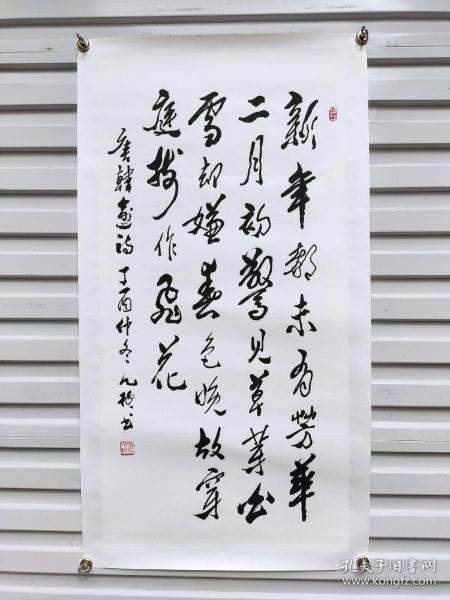 新年都未有芳華
二月初驚見草芽白
雪却嫌春色晚故穿
庭樹作飛花
唐韓愈詩 丁酉仲冬 书
孔夫子旧书网
www.kongfz.com